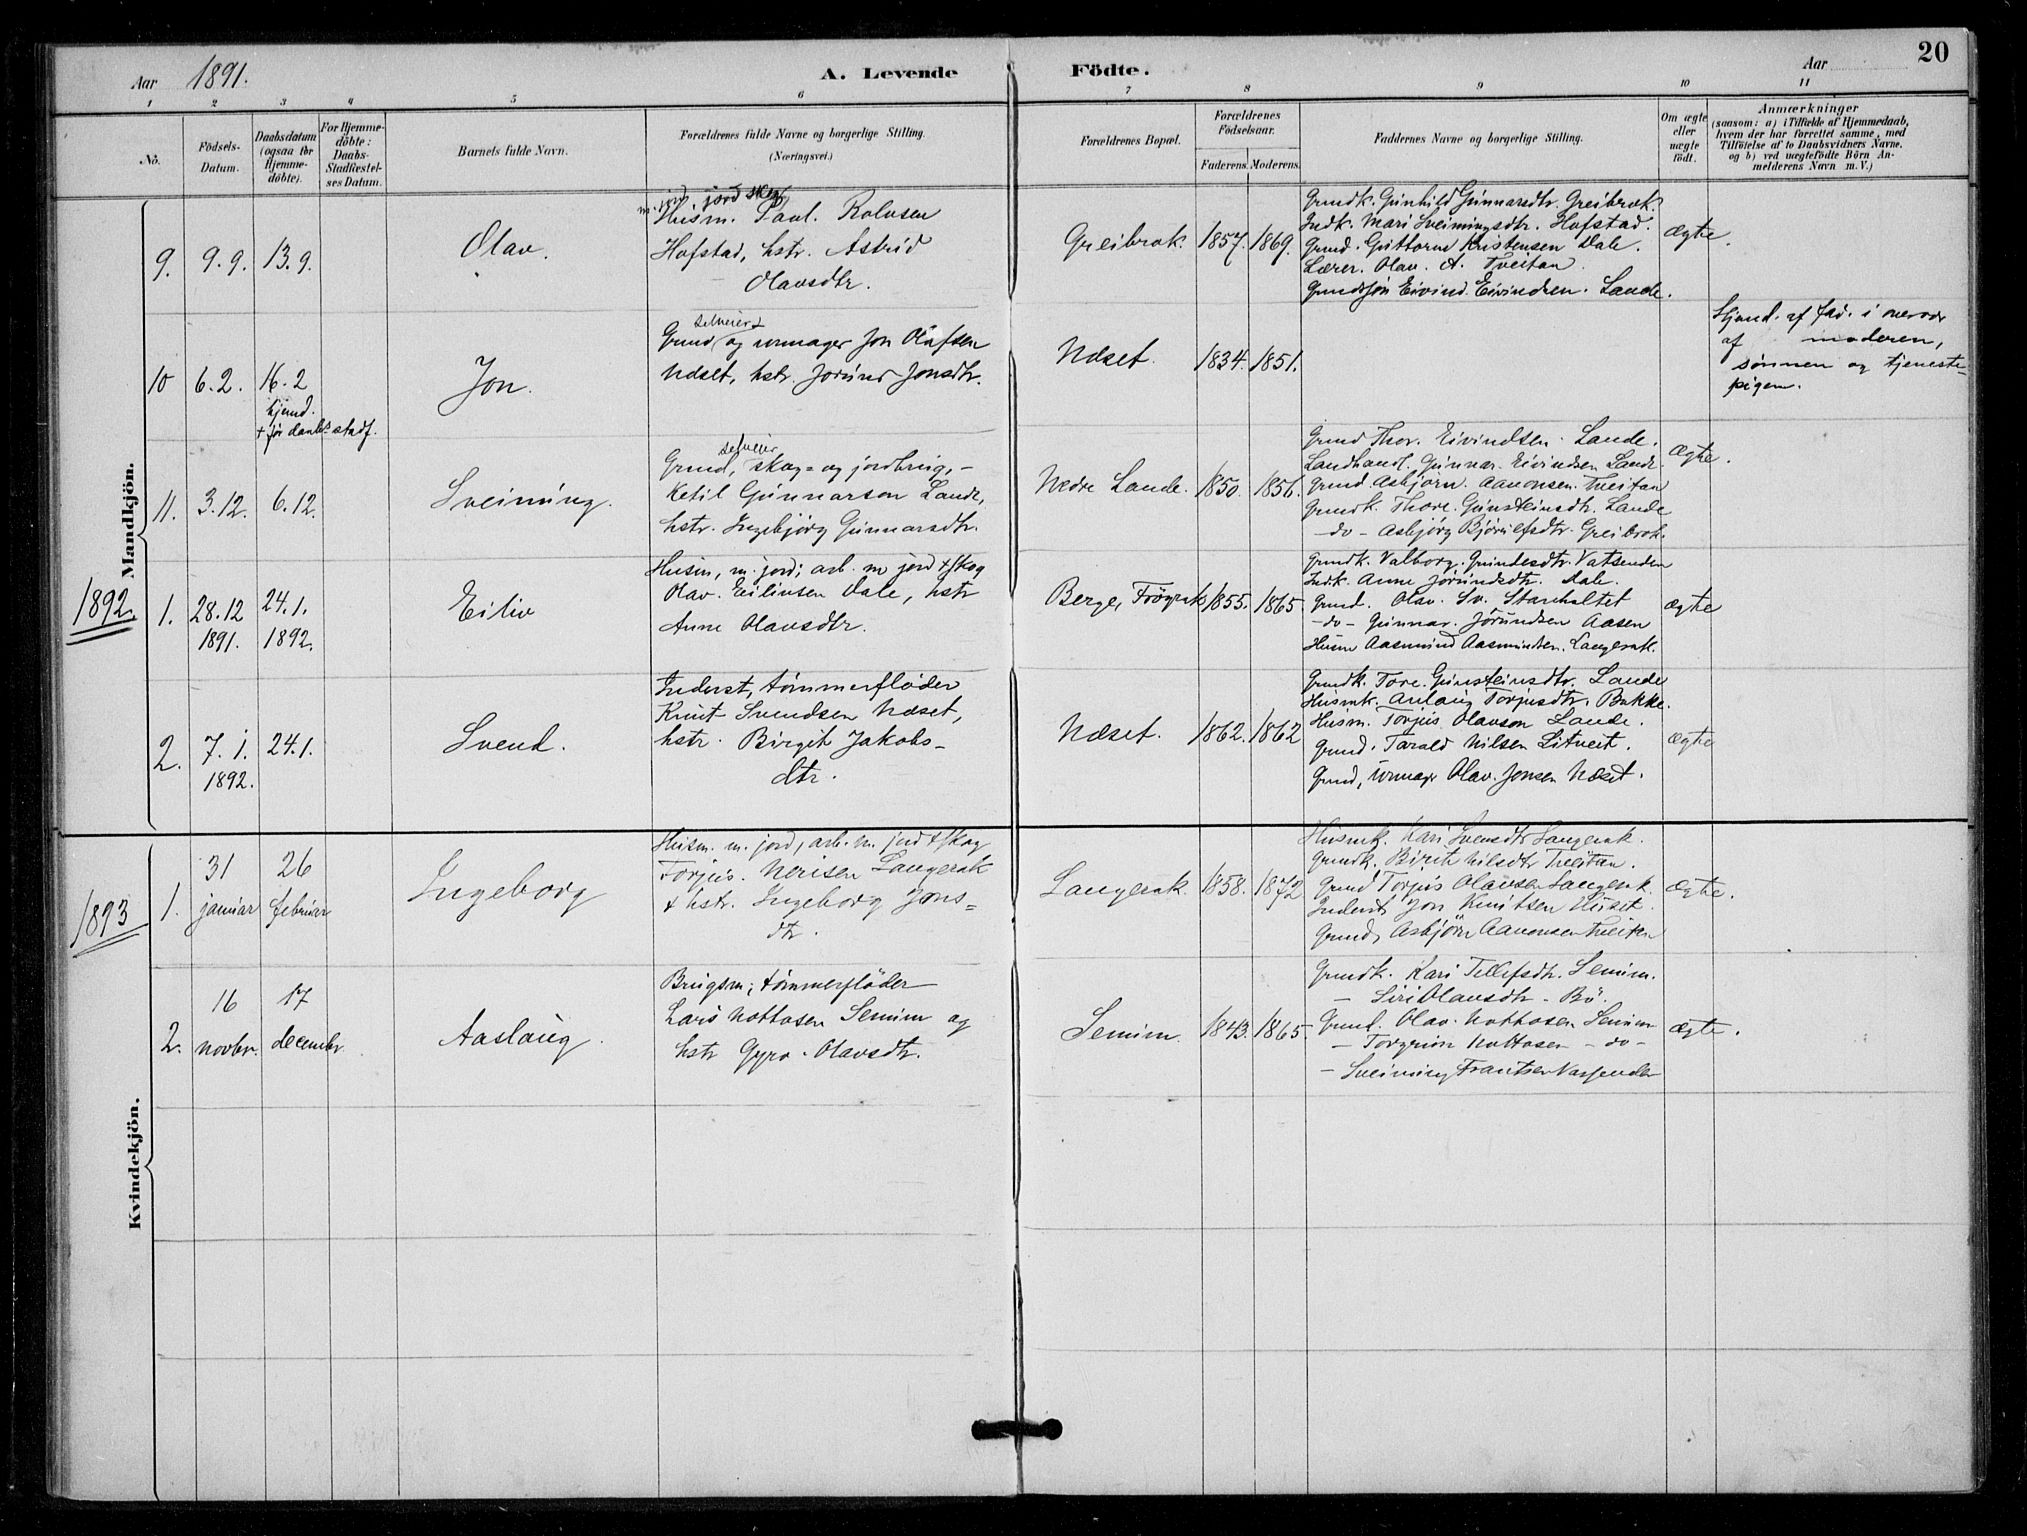 Aar 1891.
A. Levende
Födte.
Aar
20
1
2
3
4
5
6
7
8
9
10
11
No.
Födsels-
Datum.
Daabsdatum
(ogsaa for
Hjemme-
döbte).
For Hjemme-
döbte:
Daabs-
Stadfæstel-
ses Datum.
Barnets fulde Navn.
Forældrenes fulde Navne og borgerlige Stilling.
(Næringsvei.)
Forældrenes Bopæl.
Forældrenes
Födselsaar.
Faderens. Moderens.
Faddernes Navne og borgerlige Stilling.
Om ægte
eller
uægte
födt.
Anmærkninger
(saasom: a) i Tilfælde af Hjemmedaab,
hvem der har forrettet samme, med
Tilföielse af to Daabsvidners Navne,
og b) ved uægtefödte Börn An-
melderens Navn m.V.)
Mandkjön.
9.
9.9.
13.9.
Olav.
m. jord, jord skog
Husm. Paul. Rolvsen
Hofstad, hstr. Astrid
Olavsdtr.
Greibrok.
1857.
1869.
Grundk. Gunhild Gunnarsdtr. Greibrok.
Indk. Mari Sveinungsdtr. Hofstad.
Grund. Guttorm Kristensen Dale.
Lærer. Olav. A. Tveitan.
Grundssön Eivind. Eivindsen. Lande.
Ægte.
10
6.2.
16.2
hjemd.
+ før daabs stadf.
Jon.
selveier
Grund og urmager Jon Olafsen
Næset, hstr. Jorund Jonsdtr.
Næset.
1834.
1851.
Hjemd. af fad. i overvær
af moderen,
sønnen og tjeneste-
pigen.
11.
3.12.
6.12.
Sveinung.
selveier
Grund, skog- og jordbrug,-
Ketil Gunnarson Lande,
hstr. Ingebjörg Gunnarsdtr.
Nedre Lande.
1850.
1856.
Grund Thor. Eivindsen. Lande.
Landhandl. Gunnar. Eivindsen Lande.
Grund. Asbjörn. Aanonsen. Tveitan
Grundk. Thore. Gunsteinsdtr. Lande
-do- Asbjörg Bjørulfsdtr. Greibrok.
Ægte.
1892.
1.
28.12
1891.
24.1.
1892.
Eiliv
Husm, m. jord; arb. m jord + skog
Olav. Eilivsen Dale, hstr
Anne Olavsdtr.
Berge,
1855.
1865
Grundk. Valborg. Vatsenden
Indk. Anne Jörundsdtr. Dale.
Grund. Olav. Sv. Stanhaltet
-do- Gunnar. Jörundsen Aasen
Husm Aasmund Aasmundsen. Langerak.
Ægte
2.
7.1.
1892.
24.1.
Svend.
Inderst, tømmerfløder
Knut Svendsen Næset,
hstr. Birgit Jakobs-
dtr.
Næset.
1862.
1862
Grundk. Tore. Gunsteinsdtr. Lande
Husmk. Torjusdtr. Bakke.
Husm. Torjus Olavson Lande.
Grund. Tarald Nilsen Litveit.
Grund, urmagr Olav. Jonsen Næset.
Ægte
1893
Kvindekjön.
1.
31
januar
26
februar
Ingeborg
Husm. m. jord, arb. m. jord + skog
Torjus. Langerak
+ hstr. Ingeborg Jons-
dtr.
Langerak.
1858.
1872
Husmk. Kari Svensdtr Langerak.
Grundk. Birit Nilsdtr Tveitan.
Grund Torjus Olavsen Langerak.
Inderst Jon Knutsen Huset.
Grund, Asbjörn Aanonsen Tveiten
Ægte.
2.
16
novbr.
17
decembr
Aaslaug.
Brugsm; tømmerfløder
Lars Nottosen Semim og
hstr Gyro. Olavsdtr.
Semim.
1843.
1865.
Grundk. Kari Tellefsdtr. Semim.
— Siri Olavsdtr. Bö.
Grund. Olav. Nottosen Semim
— Torgrim Nottosen -do-
— Sveinung Frantsen Vassenden
Ægte.